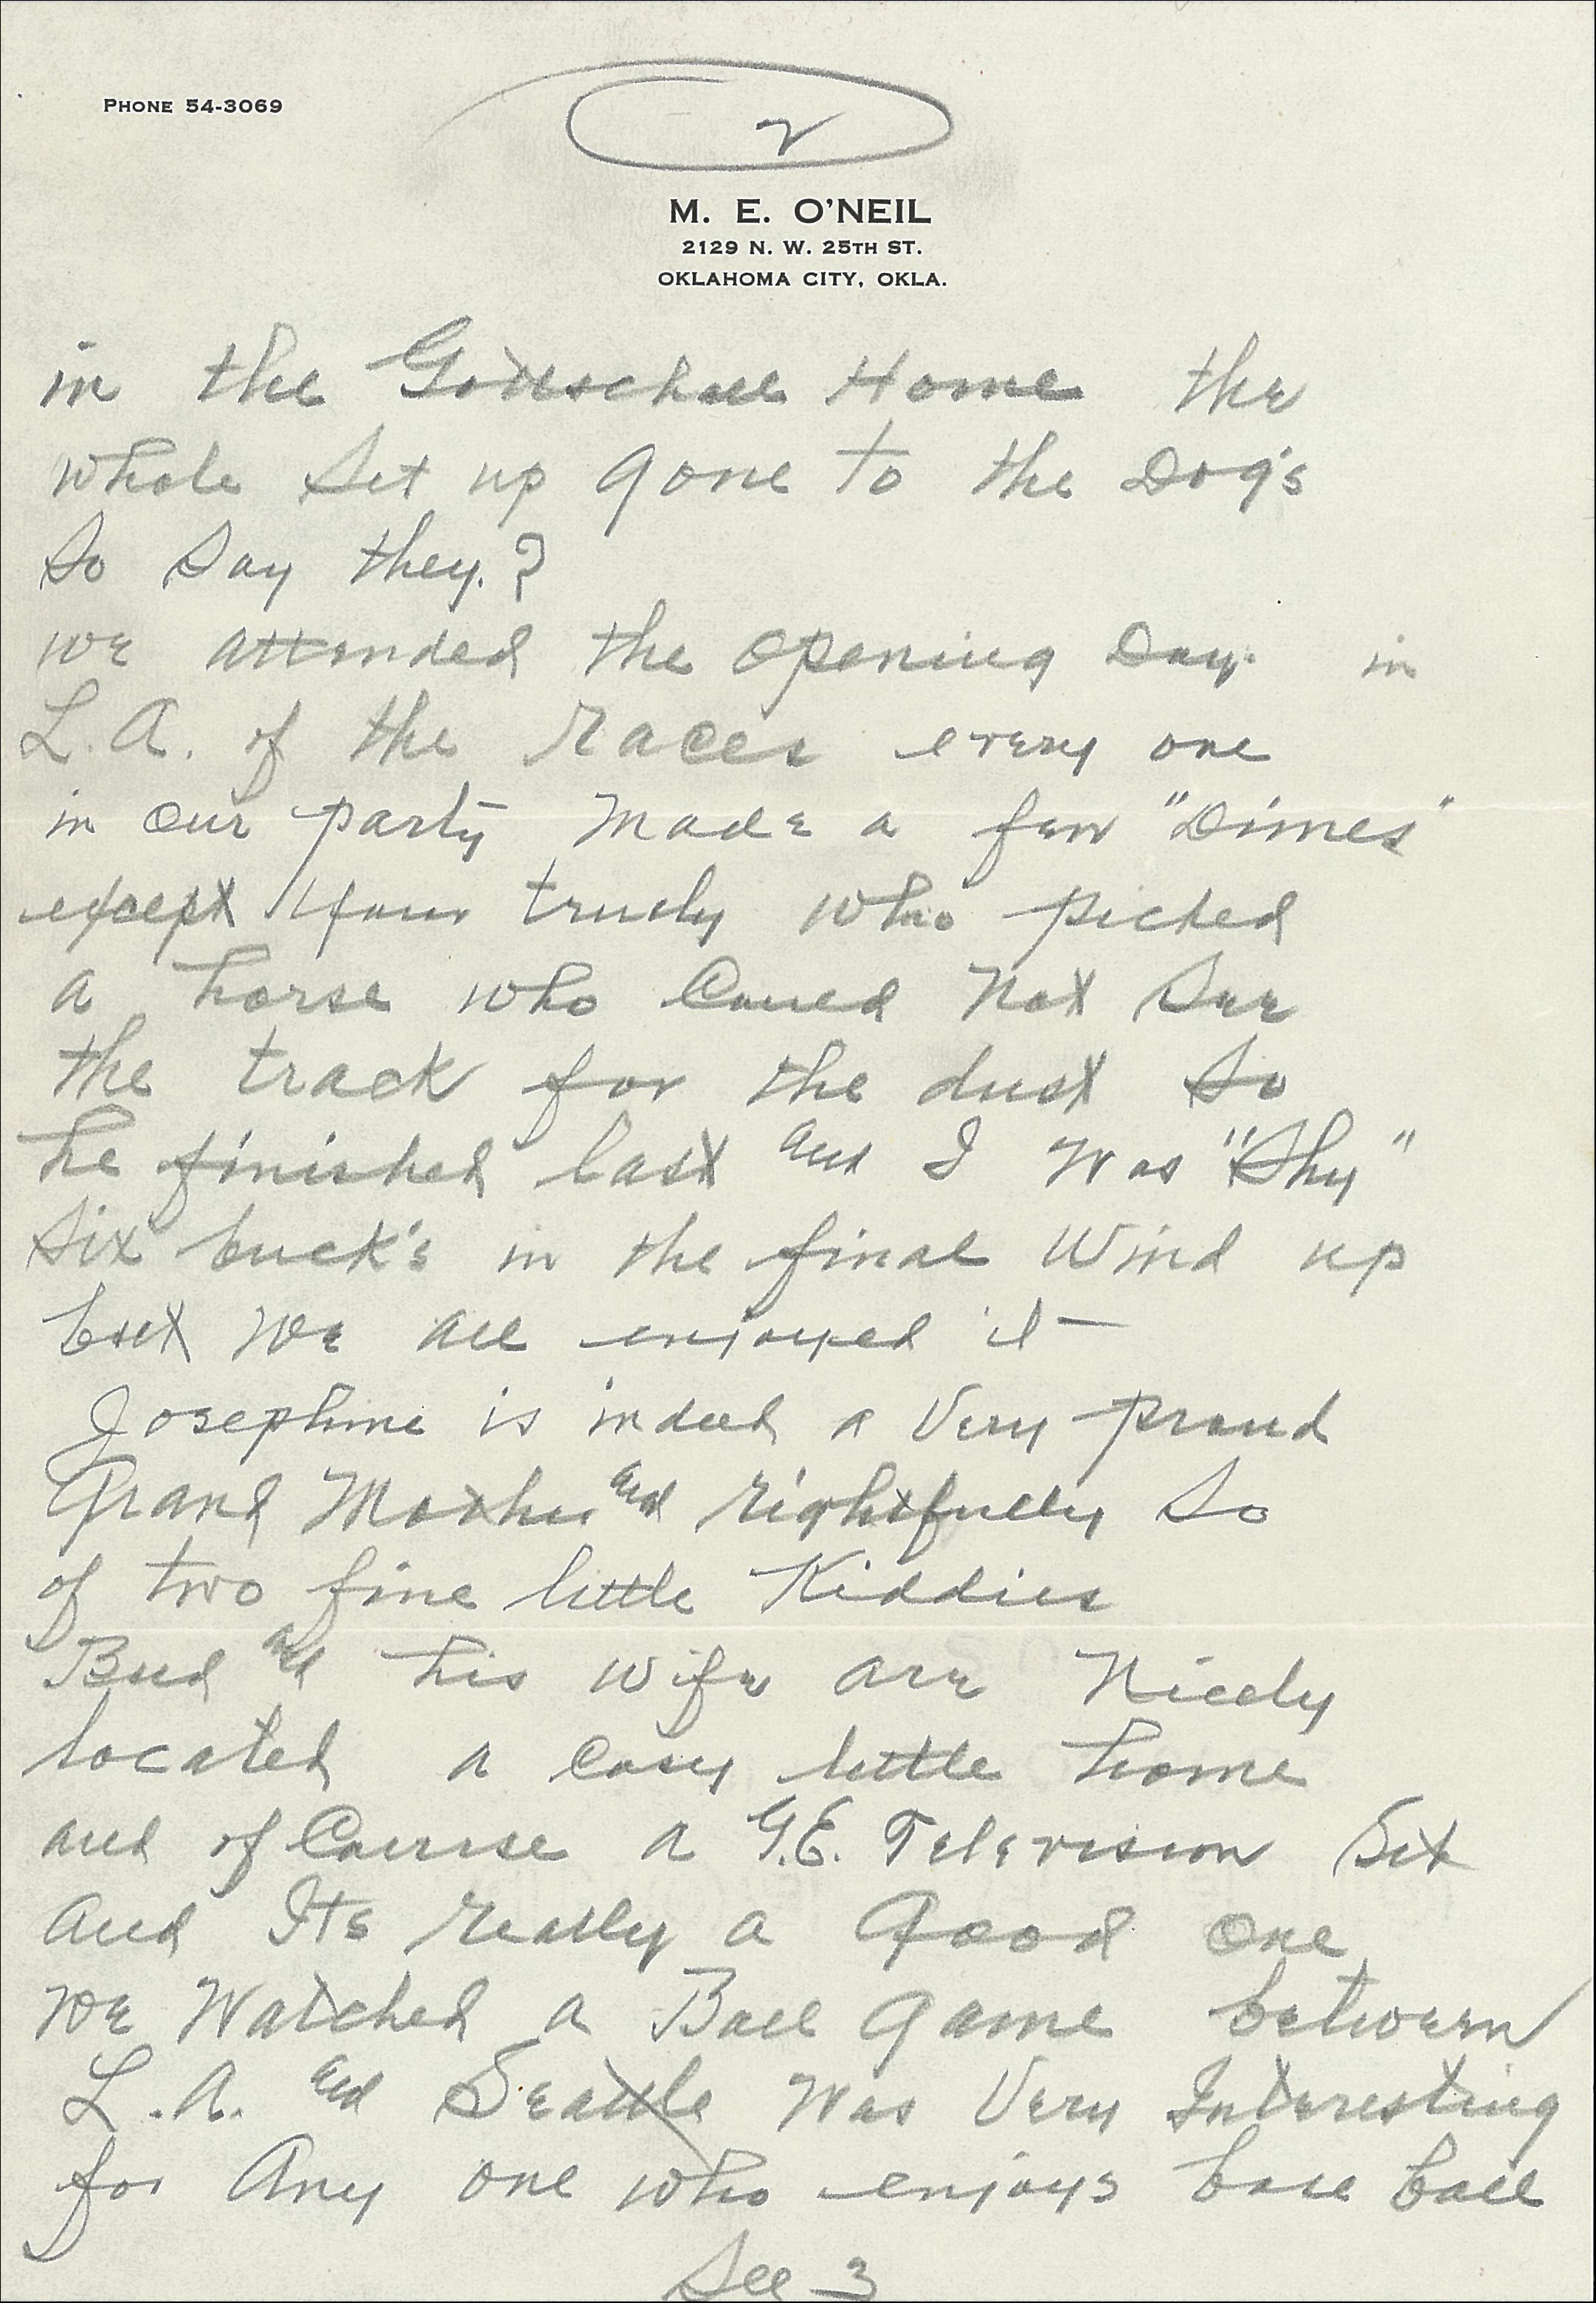 PHONE 54-3069
2
M. E. O'NEIL
2129 N. W. 25TH ST.
OKLAHOMA CITY, OKLA.
in the Gottschall Home the
whole Set up gone to the Dog's
So Say they.?
we attended the opening Day. in
L.A. of the Races every one
in our party Made a few "Dimes"
except Your truely who picked
a horse who Could Not See
the track for the dust So
he finished last and I Was "Shy"
Six buck's in the final Wind up
but We all enjoyed it —
Josephine is indeed a Very proud
Grand Mother and rightfully So
of two fine little Kiddies
Bud and his wife are Nicely
located a Cosy little home
and of Course a G.E. Television Set
and Its really a Good one
We Watched a Ball Game between
L.A. and Seattle Was Very Interesting
for Any one who enjoys base ball
See 3